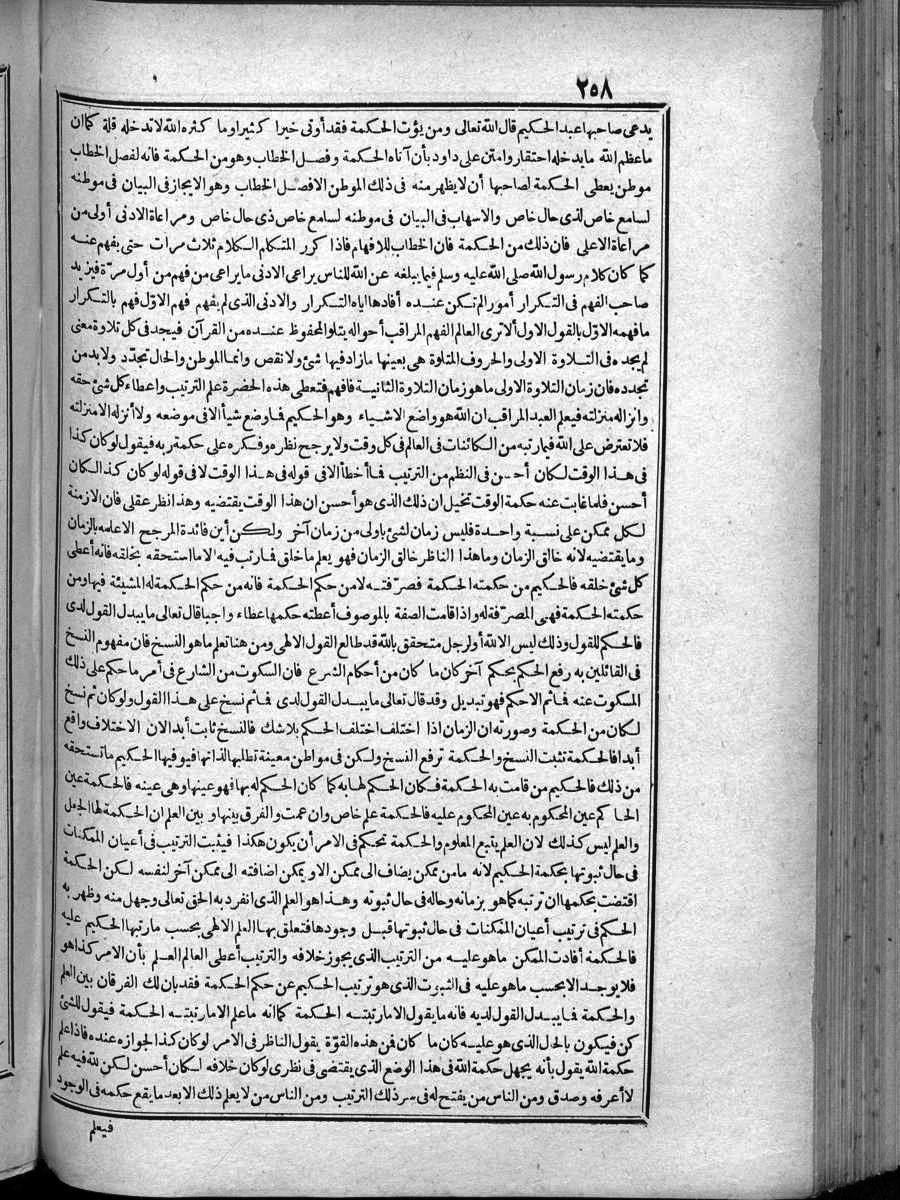 ٢٥٨
يدعى صاحبها عبد الحكيم قال الله تعالى ومن يؤت الحكمة فقد أوتى خيرا كثيرا وما كثره الله لا تدخله قلة كما ان
ما عظم الله ما يدخله احتقار وامتن على داود بأن آتاه الحكمة وفصل الخطاب وهو من الحكمة فانه لفصل الخطاب
موطن يعطى الحكمة لصاحبها أن لا يظهر منه فى ذلك الموطن الا فصل الخطاب وهو الايجاز فى البيان فى موطنه
لسامع خاص لذى حال خاص والاسهاب فى البيان فى موطنه لسامع خاص ذى حال خاص ومراعاة الادنى أولى من
مراعاة الاعلى فان ذلك من الحكمة فان الخطاب للافهام فاذا كرر المتكلم الكلام ثلاث مرات حتى يفهم عنه
كما كان كلام رسول الله صلى الله عليه وسلم فيما يبلغه عن الله للناس يراعى الادنى ما يراعى من فهم من أول مرة فيزيد
صاحب الفهم فى التكرار أمورا لم تكن عنده أفادها اياه التكرار والادنى الذى لم يفهم فهم الاول فهم بالتكرار
ما فهمه الاول بالقول الاول ألا ترى العالم الفهم المراقب أحواله يتلو المحفوظ عنده من القرآن فيجد فى كل تلاوة معنى
لم يجده فى التلاوة الاولى والحروف المتلوة هى بعينها ما زاد فيها شئ ولا نقص وانما الموطن والحال تجدد ولا بد من
تجدده فان زمان التلاوة الاولى ما هو زمان التلاوة الثانية فافهم فتعطى هذه الحضرة علم الترتيب واعطاء كل شئ حقه
وانزاله منزلته فيعلم العبد المراقب ان الله هو واضع الاشياء وهو الحكيم فما وضع شيأ الا فى موضعه ولا أنزله الا منزلته
فلا تعترض على الله فيما رتبه من الكائنات فى العالم فى كل وقت ولا يرجح نظره وفكره على حكمة ربه فيقول لو كان كذا
فى هذا الوقت لكان أحسن فى النظم من الترتيب فما أخطأ الا فى قوله فى هذا الوقت لا فى قوله لو كان كذا لكان
أحسن فلما غابت عنه حكمة الوقت تخيل ان ذلك الذى هو أحسن ان هذا الوقت يقتضيه وهذا نظر عقلى فان الازمنة
لكل ممكن على نسبة واحدة فليس زمان لشئ باولى من زمان آخر ولكن أين فائدة المرجح الا علمه بالزمان
وما يقتضيه لانه خالق الزمان وما هذا الناظر خالق الزمان فهو يعلم ما خلق فما رتب فيه الا ما استحقه بخلقه فانه أعطى
كل شئ خلقه فالحكيم من حكمته الحكمة فصرفته لا من حكم الحكمة فانه من حكم الحكمة له المشيئة فيها ومن
حكمته الحكمة فهى المصرفة له واذا قامت الصفة بالموصوف أعطته حكمها عطاء واجبا قال تعالى ما يبدل القول لدى
فالحكم للقول وذلك ليس الا لله أو لرجل متحقق بالله قد طالع القول الالهى ومن هنا تعلم ما هو النسخ فان مفهوم النسخ
فى القائلين به رفع الحكم بحكم آخر كان ما كان من أحكام الشرع فان السكوت من الشارع فى أمر ما حكم على ذلك
المسكوت عنه فما ثم الا حكم فهو تبديل وقد قال تعالى ما يبدل القول لدى فما ثم نسخ على هذا القول ولو كان ثم نسخ
لكان من الحكمة وصورته ان الزمان اذا اختلف اختلف الحكم بلا شك فالنسخ ثابت أبد الان الاختلاف واقع
أبدا فالحكمة تثبت النسخ والحكمة ترفع النسخ ولكن فى مواطن معينة تطلبها لذاتها فيوفيها الحكيم ما تستحقه
من ذلك فالحكيم من قامت به الحكمة فكان الحكم لها به كما كان الحكم له بها فهو عينها وهى عينه فالحكمة عين
الحاكم عين المحكوم به عين المحكوم عليه فالحكمة علم خاص وان عمت والفرق بينها وبين العلم ان الحكمة لها الجعل
والعلم ليس كذلك لان العلم يتبع المعلوم والحكمة تحكم فى الامر أن يكون هكذا فيثبت الترتيب فى أعيان الممكنات
فى حال ثبوتها بحكمة الحكيم لانه ما من ممكن يضاف الى ممكن الا ويمكن اضافته الى ممكن آخر لنفسه لكن الحكمة
اقتضت بحكمها ان ترتبه كما هو بزمانه وحاله فى حال ثبوته وهذا هو العلم الذى انفرد به الحق تعالى وجهل منه وظهر به
الحكم فى ترتيب أعيان الممكنات فى حال ثبوتها قبل وجودها فتعلق بها العلم الالهى بحسب ما رتبها الحكيم عليه
فالحكمة أفادت الممكن ما هو عليه من الترتيب الذى يجوز خلافه والترتيب أعطى العالم العلم بأن الامر كذا هو
فلا يوجد الا بحسب ما هو عليه فى الثبوت الذى هو ترتيب الحكيم عن حكم الحكمة فقد بان لك الفرقان بين العلم
والحكمة فما يبدل القول لديه فانه ما يقول الا ما رتبته الحكمة كما انه ما علم الا ما رتبته الحكمة فيقول للشئ
كن فيكون بالحال الذى هو عليه كان ما كان فمن هذه القوة يقول الناظر فى الامر لو كان كذا لجوازه عنده فاذا علم
حكمة الله يقول بأنه يجهل حكمة الله فى هذا الوضع الذى يقتضى فى نظرى لو كان خلافه لكان أحسن لكن لله فيه علم
لا أعرفه وصدق ومن الناس من يفتح له فى سر ذلك الترتيب ومن الناس من لا يعلم ذلك الا بعد ما يقع حكمه فى الوجود
فيعلم